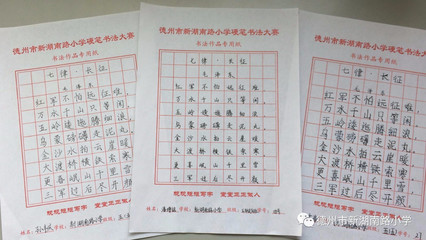 德州市新湖南路小学硬笔书法大赛
书法作品专用纸
七律·长征
红军不怕远征难
万水千山只等闲
五岭逶迤腾细浪
乌蒙磅礴走泥丸
金沙水拍云崖暖
大渡桥横铁索寒
更喜岷山千里雪
三军过后尽开颜
姓名：
学校：新湖南路小学
德州市新湖南路小学硬笔书法大赛
书法作品专用纸
七律·长征
毛泽东
红军不怕远征难，
万水千山只等闲。
五岭逶迤腾细浪，
乌蒙磅礴走泥丸。
金沙水拍云崖暖，
大渡桥横铁索寒。
更喜岷山千里雪，
三军过后尽开颜。
规规矩矩写字 堂堂正正做人
姓名：
学校：新湖南路小学
德州市新湖南路小学硬笔书法大赛
书法作品专用纸
七律·长征
红军不怕远征难
万水千山只等闲
五岭逶迤腾细浪
乌蒙磅礴走泥丸
金沙水拍云崖暖
大渡桥横铁索寒
更喜岷山千里雪
三军过后尽开颜
德州市新湖南路小学